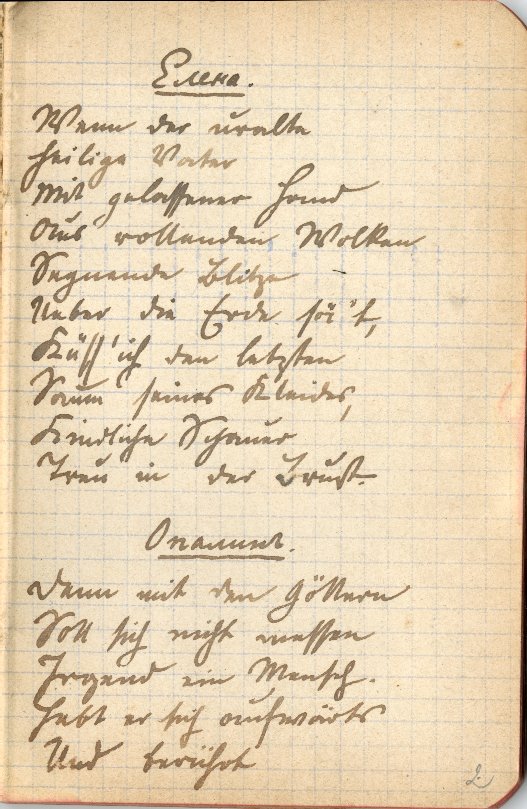 Елена.
Wenn der uralte
heilige Vater
Mit gelassener Hand
Aus rollenden Wolken
Segnende Blitze
Ueber die Erde sä't,
Küss' ich den letzten
Saum seines Kleides,
Kindliche Schauer
Treu in der Brust.
Опалинъ.
Denn mit den Göttern
Soll sich nicht messen
Irgend ein Mensch.
Hebt er sich aufwärts
Und berührt
2.